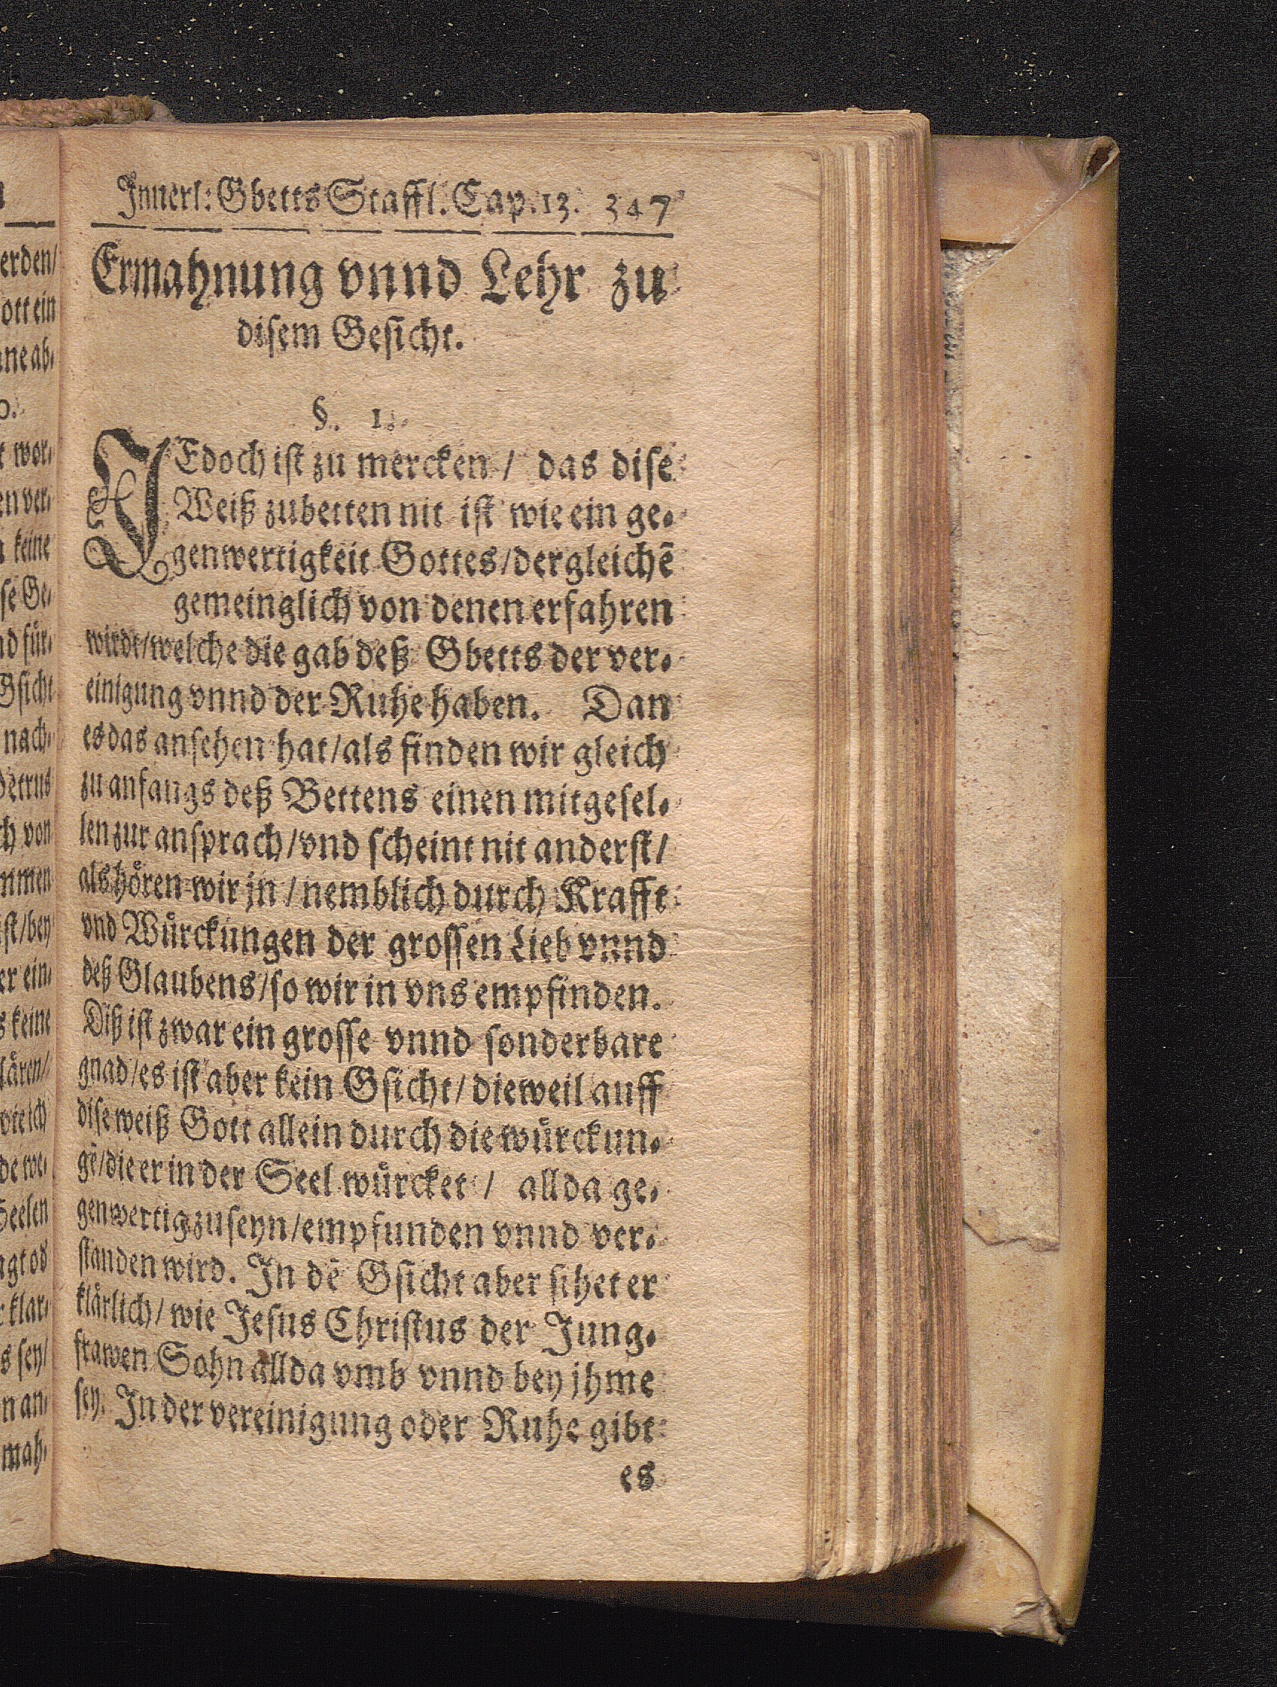 Innerl: Gbetts Staffl. Cap. 13. 347
Ermahnung vnnd Lehr zu
disem Gesicht.
§. 1.
JEdoch ist zu mercken / das dise
Weiß zubetten nit ist wie ein ge-
genwertigkeit Gottes / dergleichē
gemeinglich von denen erfahren
wirdt / welche die gab deß Gbetts der ver-
einigung vnnd der Ruhe haben. Dan
es das ansehen hat / als finden wir gleich
zu anfangs deß Bettens einen mitgesel-
len zur ansprach / vnd scheint nit anderst /
als hören wir jn / nemblich durch Krafft
vnd Würckungen der grossen Lieb vnnd
deß Glaubens / so wir in vns empfinden.
Diß ist zwar ein grosse vnnd sonderbare
gnad / es ist aber kein Gsicht / dieweil auff
dise weiß Gott allein durch die würckun-
gē / die er in der Seel würcket / allda ge-
genwertig zu seyn / empfunden vnnd ver-
standen wird. In dē Gsicht aber sihet er
klärlich / wie Jesus Christus der Jung-
frawen Sohn allda vmb vnnd bey jhme
sey. In der vereinigung oder Ruhe gibt
es